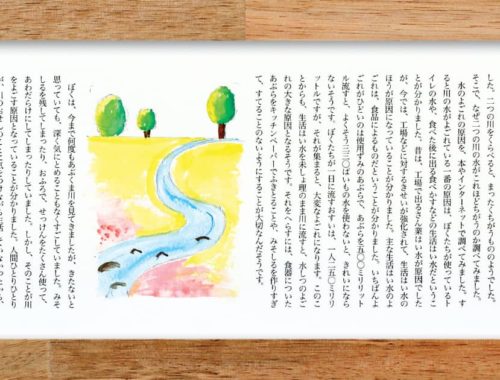 した。二つの川をくらべると、まったくちがう川のようでした。
そこで、なぜ二つの川がこれほどちがうのか調べてみました。
水のよごれの原因を、本やインターネットで調べてみました。す
ると川の水がよごれている一番の原因は、ぼくたちが使っているト
イレの水や、食べた後に出る食べるすなどの生活はい水だというこ
とが分かりました。昔は、工場で出るさん業はい水が原因でした
が、今では、工場などに対するきせいが強化されて、生活はい水の
ほうが原因になっていることが分かりました。主な生活はい水のよ
ごれは、食品によるものだということが分かりました。いちばんよ
ごれがひどいのは使用ずみのあぶらで、あぶらを五〇〇ミリリット
ル流すと、よくそう三三〇ぱいもの水を使わないと、きれいになら
ないそうです。ぼくたちが一日に流すおすいは、一人二五〇ミリリ
ットルですが、それが集まると、大変なよごれになります。このこ
とからも、生活はい水を未しょ理のまま川に流すと、水しつのよご
れの大きな原因となるそうです。それをへらすには、食器についた
あぶらをキッチンペーパーでふきとることや、みそしるを作りすぎ
て、すてることのないようにすることが大切なんだそうです。
ぼくは、今まで何度もあぶくま川を見てきましたが、きたないと
思っていても、深く気にとめることもなくすごしていました。みそ
しるを残してしまったり、おふろで、せっけんをたくさん使って、
あわだらけにしてしまったりしていました。しかし、そのことが川
をよごす原因となっていることが分かりました。人間ひとりひとり